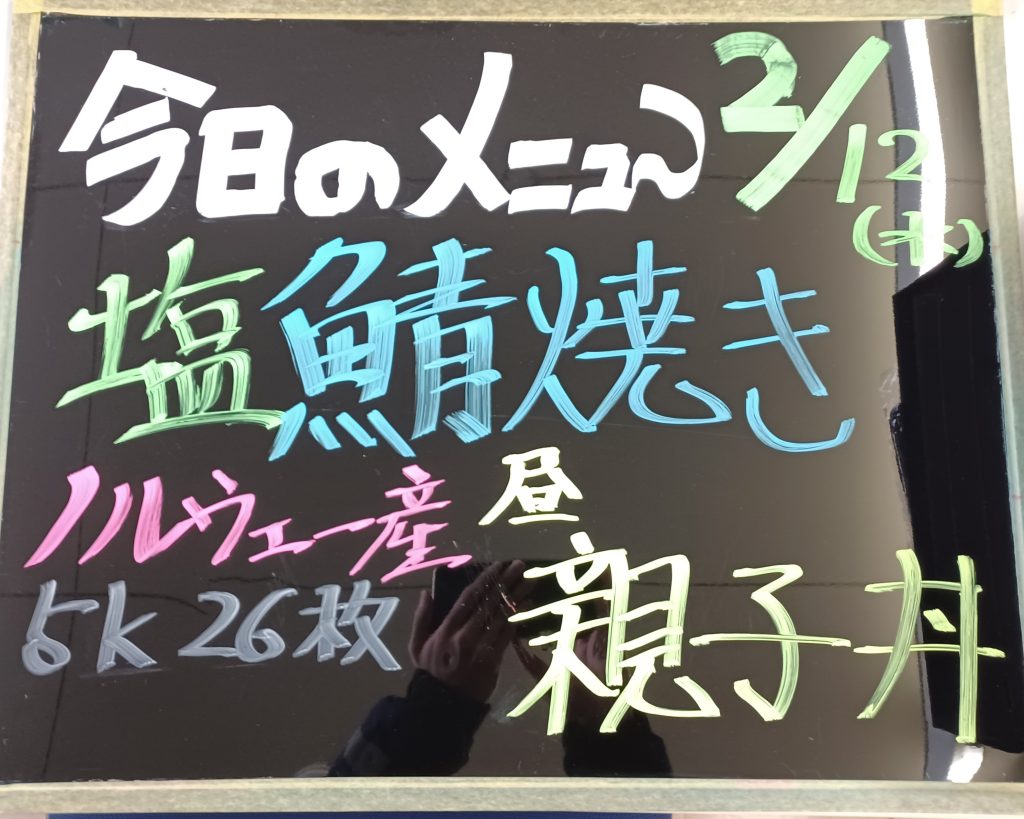 今日のメニュー 2/12
(水)
塩鯖焼き
ノルウェー産
5k 26枚
昼
親子丼